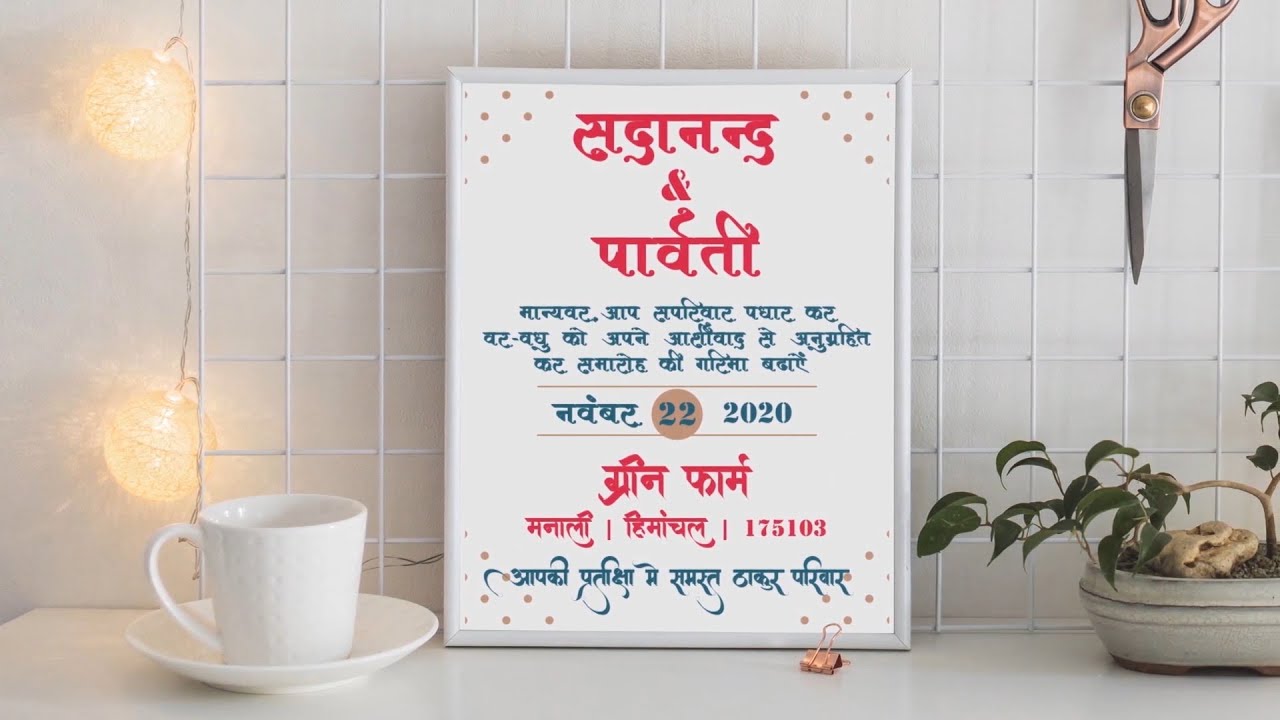 सदानन्द
&
पार्वती
मान्यवर, आप सपरिवार पधार कर
वर-वधु को अपने आर्शीवाद से अनुग्रहित
कर समारोह की गरिमा बढाऐं
नवंबर 22 2020
ग्रीन फार्म
मनाली | हिमांचल | 175103
आपकी प्रतीक्षा मे समस्त ठाकुर परिवार